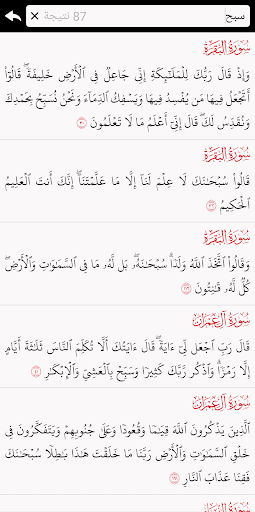 سبح 87 نتيجة ×
سُورَةُ البَقَرَةِ
وَإِذْ قَالَ رَبُّكَ لِلْمَلَـٰٓئِكَةِ إِنِّى جَاعِلٌ فِى ٱلْأَرْضِ خَلِيفَةً ۖ قَالُوٓا۟
أَتَجْعَلُ فِيهَا مَن يُفْسِدُ فِيهَا وَيَسْفِكُ ٱلدِّمَآءَ وَنَحْنُ نُسَبِّحُ بِحَمْدِكَ
وَنُقَدِّسُ لَكَ ۖ قَالَ إِنِّىٓ أَعْلَمُ مَا لَا تَعْلَمُونَ ٣٠
سُورَةُ البَقَرَةِ
قَالُوا۟ سُبْحَـٰنَكَ لَا عِلْمَ لَنَآ إِلَّا مَا عَلَّمْتَنَآ ۖ إِنَّكَ أَنتَ ٱلْعَلِيمُ
ٱلْحَكِيمُ ٣٢
سُورَةُ البَقَرَةِ
وَقَالُوا۟ ٱتَّخَذَ ٱللَّهُ وَلَدًا ۗ سُبْحَـٰنَهُۥ ۖ بَل لَّهُۥ مَا فِى ٱلسَّمَـٰوَٰتِ وَٱلْأَرْضِ ۖ
كُلٌّ لَّهُۥ قَـٰنِتُونَ ١١٦
سُورَةُ آلِ عِمۡرَانَ
قَالَ رَبِّ ٱجْعَل لِّىٓ ءَايَةً ۖ قَالَ ءَايَتُكَ أَلَّا تُكَلِّمَ ٱلنَّاسَ ثَلَـٰثَةَ أَيَّامٍ
إِلَّا رَمْزًا ۗ وَٱذْكُر رَّبَّكَ كَثِيرًا وَسَبِّحْ بِٱلْعَشِىِّ وَٱلْإِبْكَـٰرِ ٤١
سُورَةُ آلِ عِمۡرَانَ
ٱلَّذِينَ يَذْكُرُونَ ٱللَّهَ قِيَـٰمًا وَقُعُودًا وَعَلَىٰ جُنُوبِهِمْ وَيَتَفَكَّرُونَ فِى
خَلْقِ ٱلسَّمَـٰوَٰتِ وَٱلْأَرْضِ رَبَّنَا مَا خَلَقْتَ هَـٰذَا بَـٰطِلًا سُبْحَـٰنَكَ
فَقِنَا عَذَابَ ٱلنَّارِ ١٩١